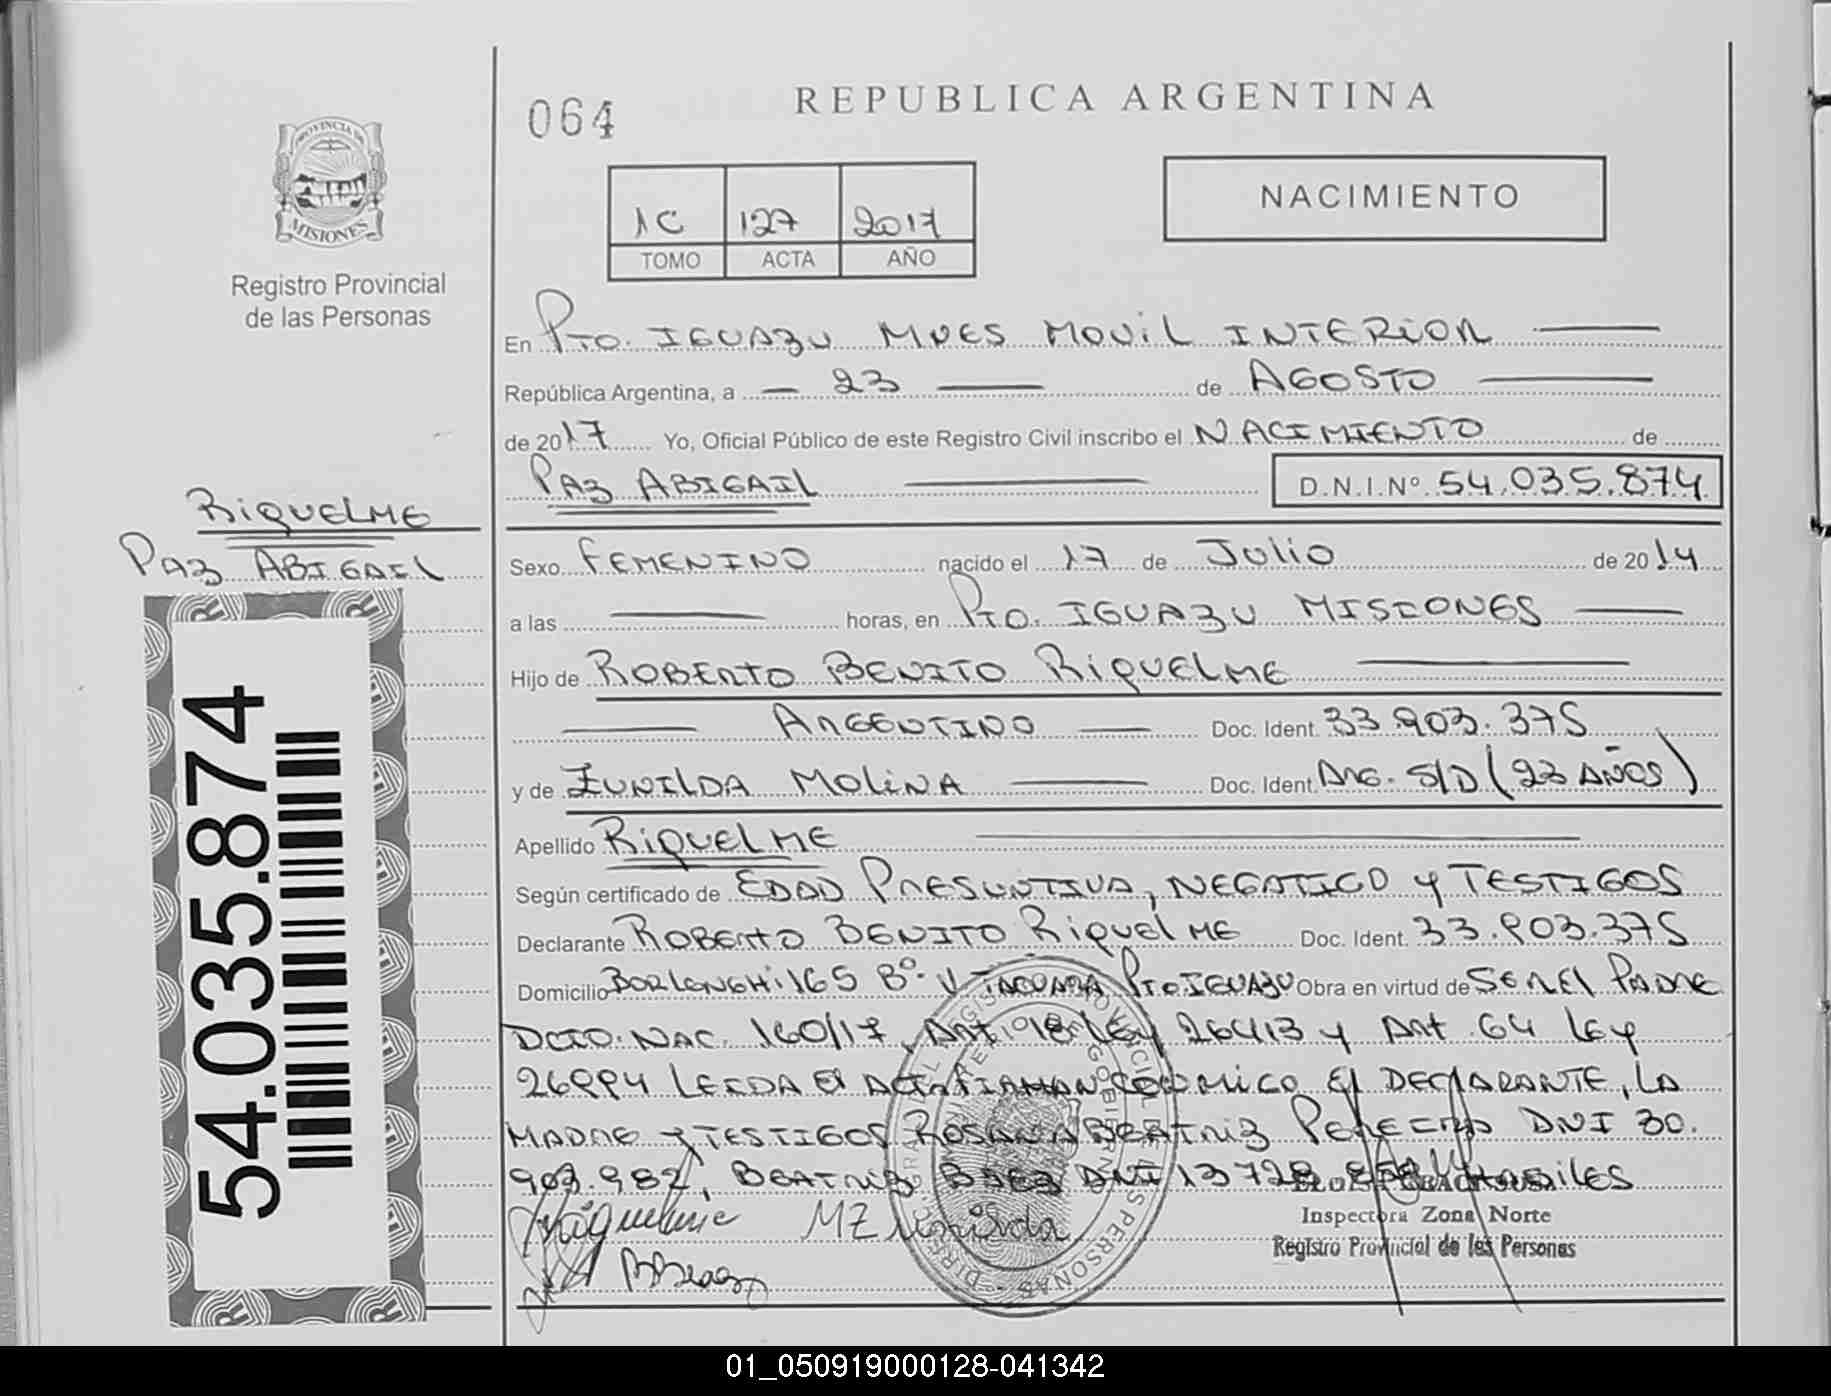 064
REPUBLICA ARGENTINA
PROVINCIA DE
MISIONES
Registro Provincial
de las Personas
1C 127 2017
TOMO ACTA AÑO
NACIMIENTO
En PTO. IGUAZU MNES MOVIL INTERIOR
República Argentina, a 23 de AGOSTO
de 2017 Yo, Oficial Público de este Registro Civil inscribo el NACIMIENTO de
PAZ ABIGAIL D.N.I.Nº 54.035.874
RIQUELME
PAZ ABIGAIL
54.035.874
Sexo FEMENINO nacido el 17 de JULIO de 2014
a las horas, en PTO. IGUAZU MISIONES
Hijo de ROBERTO BENITO RIQUELME
ARGENTINO Doc. Ident. 33.903.375
y de ZUNILDA MOLINA Doc. Ident. ARG. S/D (23 AÑOS)
Apellido RIQUELME
Según certificado de EDAD PRESUNTIVA, NEGATIVO Y TESTIGOS
Declarante ROBERTO BENITO RIQUELME Doc. Ident. 33.903.375
Domicilio BORLENGHI 165 Bº V. TACUARA PTO IGUAZU Obra en virtud de SER EL PADRE
DCTO. NAC. 160/17, ART. 18 LEY 26413 Y ART 64 LEY
26994 LEIDA EL ACTA FIRMAN CONMIGO EL DECLARANTE, LA
MADRE Y TESTIGOS ROSANA BEATRIZ DNI 30.
903.982, BEATRIZ BAEZ DNI 13728 HABILES
Riquelme MZunilda
Inspectora Zona Norte
Registro Provincial de las Personas
BBaez
01_050919000128-041342